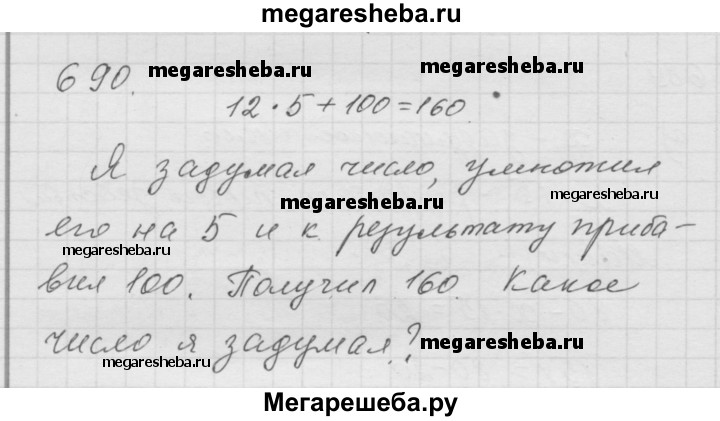 megaresheba.ru
690. megaresheba.ru megaresheba.ru
12 · 5 + 100 = 160.
Я задумал число, умножил
megaresheba.ru megaresheba.ru
его на 5 и к результату приба-
megaresheba.ru megaresheba.ru
вил 100. Получил 160. Какое
число я задумал? megaresheba.ru
megaresheba.ru
Мегарешеба.ру